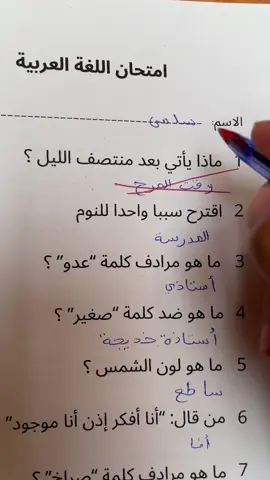 امتحان اللغة العربية
الاسم: سلمى
1 ماذا يأتي بعد منتصف الليل ؟
وقت المرح
2 اقترح سببا واحدا للنوم
المدرسة
3 ما هو مرادف كلمة “عدو” ؟
أستاذي
4 ما هو ضد كلمة “صغير” ؟
أستاذة خديجة
5 ما هو لون الشمس ؟
ساطع
6 من قال: “أنا أفكر إذن أنا موجود”
أنا
7 ما هو مرادف كلمة “صراخ” ؟